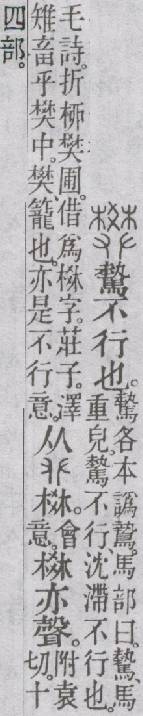 騺不行也。
騺各本譌鷙。馬部曰。騺、馬
重皃。騺不行、沈滯不行也。
毛詩。折柳樊圃。借爲棥字。莊子。澤
雉畜乎樊中。樊籠也。亦是不行意。
从𠬜棥。
會
意。
棥亦聲。
附袁
切。十
四部。